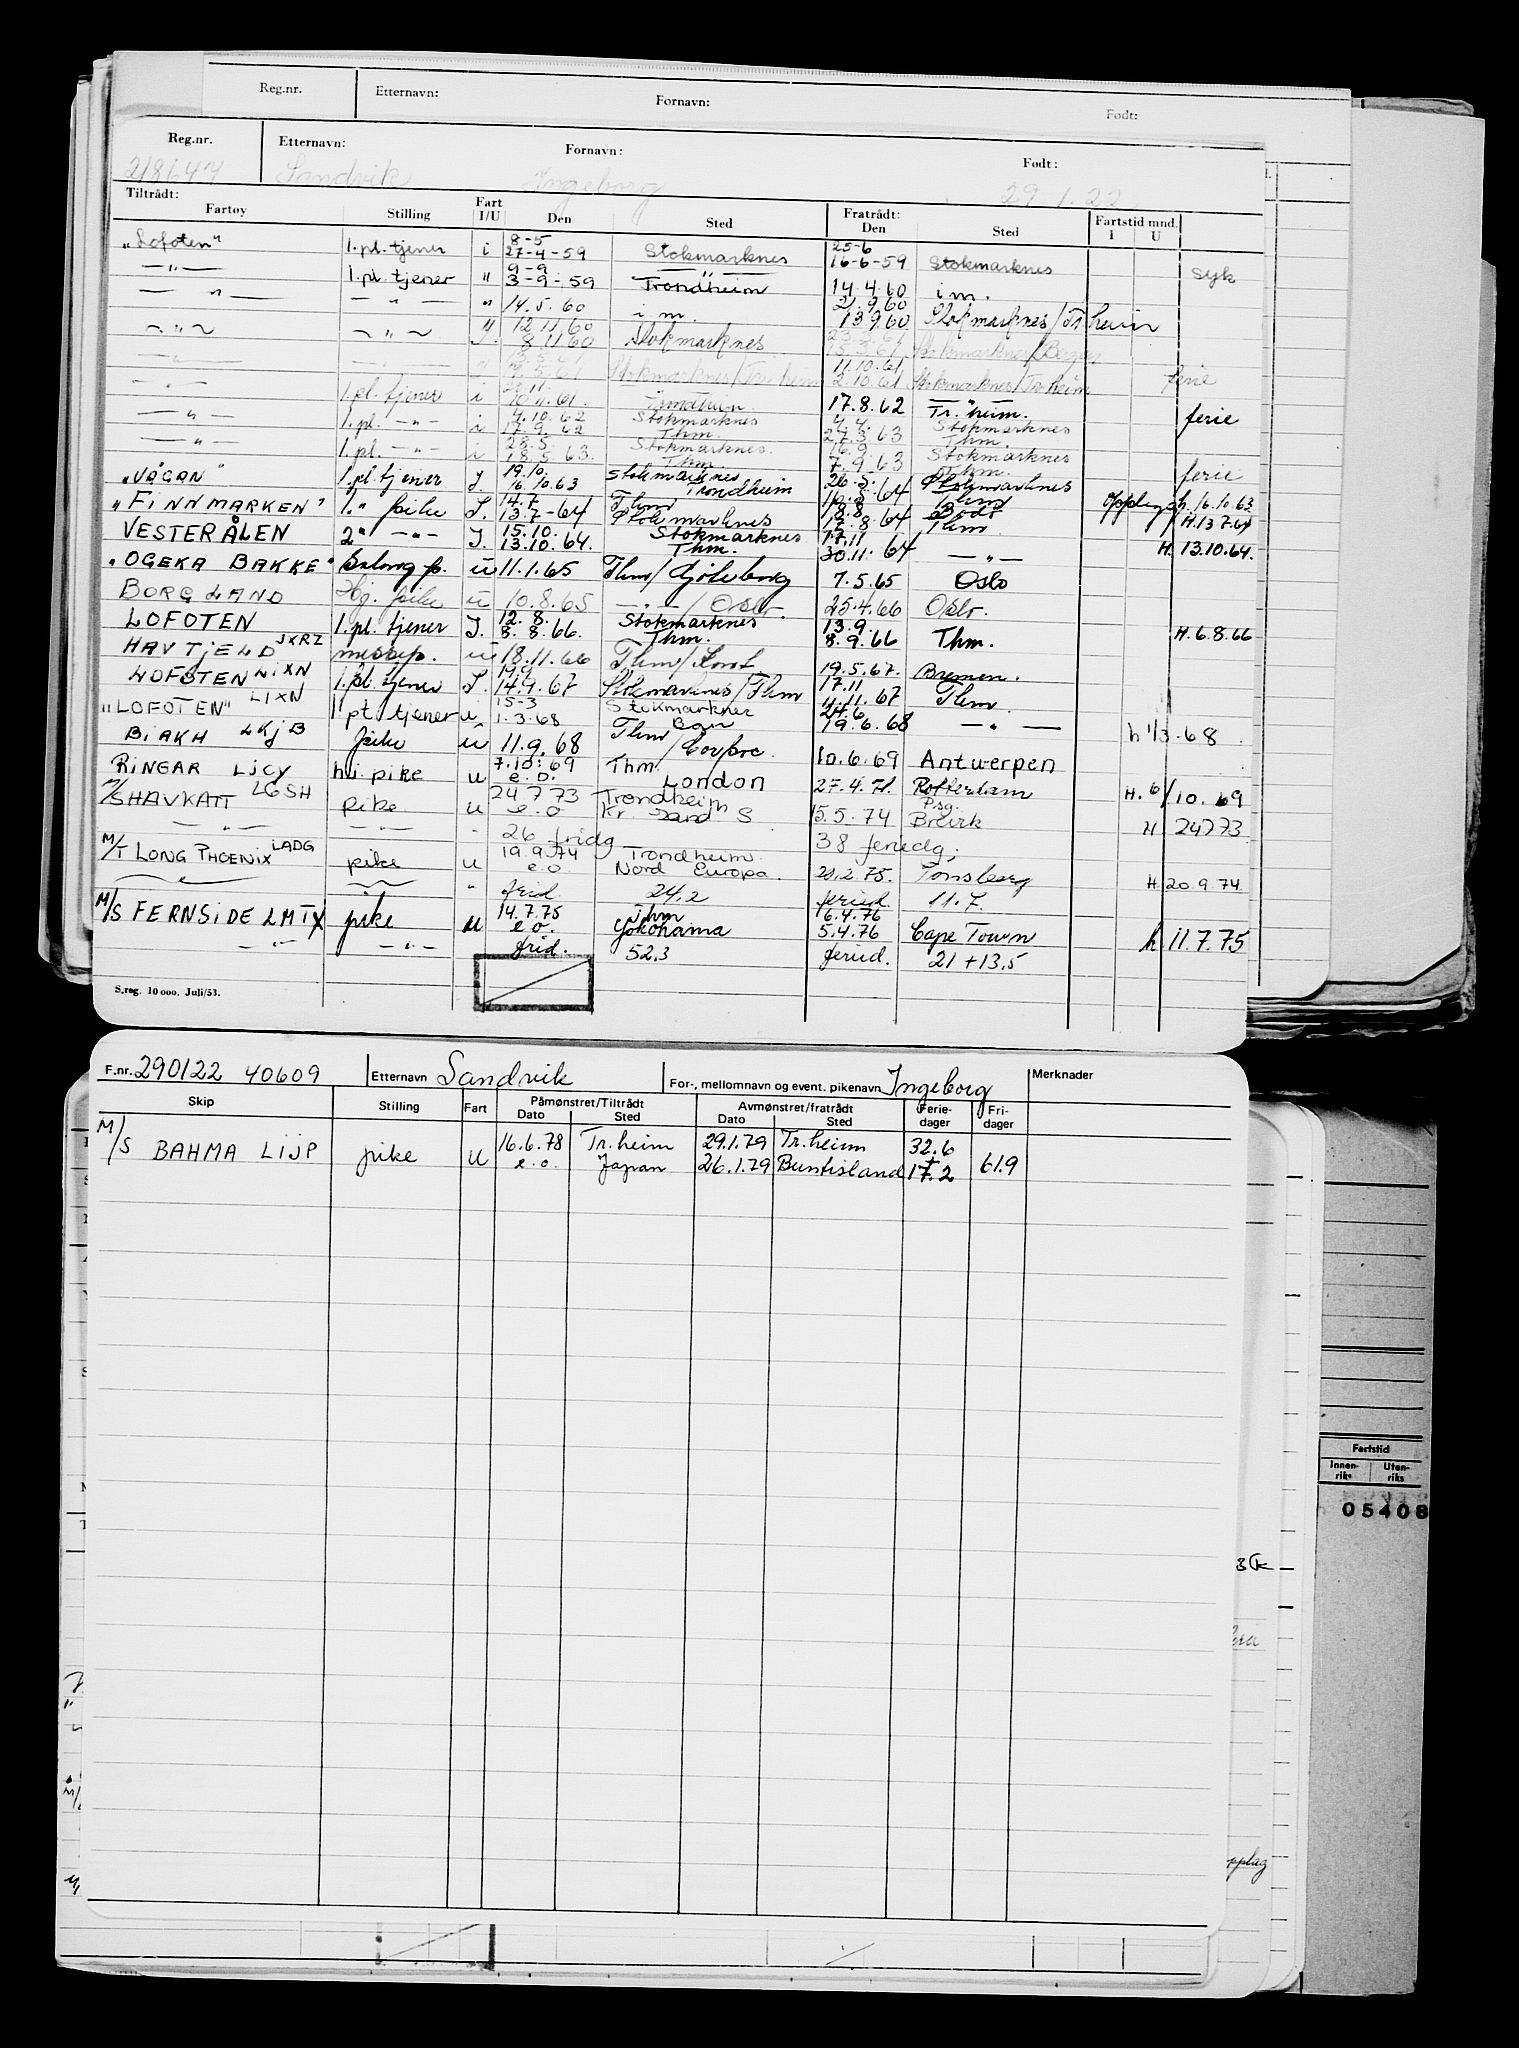 Reg.nr. Etternavn: Fornavn: Født:
Reg.nr. Etternavn: Fornavn: Født:
218647 Sandvik Ingeborg 29.1.22
Tiltrådt: Fart Fratrådt: Fartstid mnd.
Fartøy Stilling I/U Den Sted Den Sted I U
8-5 25-6
"Lofoten" 1.pl.tjener i 27-4-59 Stokmarknes 16-6-59 Stokmarknes syk
9-9
—"— 1.pl.tjener " 3-9-59 Trondheim 14.4.60 i m.
21.9.60
—"— —"— " 14.5.60 i m. 13.9.60 Stokmarknes/Tr.heim
12.11.60
—"— —"— I. 8.11.60 Stokmarknes Stokmarknes/Bergen
11.10.61
—"— Stokmarknes/Tr.heim 2.10.61 Stokmarknes/Tr.heim ferie
—"— 1.pl.tjener i 10.11.61. Trondheim. 17.8.62 Tr.heim. ferie
4.10.62 Stokmarknes 4.4. Stokmarknes
—"— 1.pl. —"— i 17.9.62 Thm. 27.3.63 Thm.
28.5. Stokmarknes. 16.9. Stokmarknes
—"— 1.pl. —"— i 18.5.63. Thm. 7.9.63 Thm. ferie
19.10. Stokmarknes 26.5. Stokmarknes
"VÅGAN" 1.pl.tjener I. 16.10.63 Trondheim 16.5.64 Thm Opplag h. 16.10.63
14.7 Thm 18.8 Bodø
"FINNMARKEN" 1." pike I. 13.7-64 Stokmarknes 17.8.64 Thm H.13.7.64
15.10. Stokmarknes 17.11
VESTERÅLEN 2" —"— I. 13.10.64. Thm. 30.11.64 —"— H. 13.10.64.
"OGEKA BAKKE" Salong p. u 11.1.65 Thm/Gøteborg 7.5.65 Oslo
BORGLAND Hj. pike u 10.8.65 —"—/Oslo. 25.4.66 Oslo.
12.8. Stokmarknes 13.9.
LOFOTEN 1.pl.tjener I. 8.8.66. Thm. 8.9.66 Thm. H.6.8.66
HAVTJELD JXRZ messep. u 18.11.66 Thm/ 19.5.67. Bremen.
19.9 17.11
LOFOTEN LIXN 1.pl.tjener I. 14.9.67 Stokmarknes/Thm 11.11.67 Thm.
15-3 Stokmarknes 24.6
"LOFOTEN" LIXN 1 pl.tjener i 1.3.68 19.6.68 —"— h 1/3.68
BIAKH LKJB pike u 11.9.68 Thm/ 10.6.69 Antwerpen
7.10.69 Thm.
RINGAR LICY hi. pike u e.o. London 27.4.71. Rotterdam H. 6/10.69
24 7 73 Trondheim Psg.
M/S HAVKATT LGSH pike u e.o Kr. sand S 15.5.74 Brevik H 24773
—"— —"— " 26 fridg 38 feriedg.
19.9.74 Trondheim.
M/T LONG PHOENIX LADG pike u e.o Nord Europa. 21.2.75. Tønsberg H 20.9.74.
" frid 24,2 feried. 11.7.
14.7.75 Thm 6.4.76
M/S FERNSIDE LMTX pike u e.o. Yokohama 5.4.76 Cape Town h 11.7.75
—"— —"— frid. 52,3 feried. 21 + 13,5
S.reg. 10 000. Juli/53.
F.nr. 290122 40609 Etternavn Sandvik For-, mellomnavn og event. pikenavn Ingeborg Merknader
Skip Stilling Fart Påmønstret/Tiltrådt Avmønstret/fratrådt Ferie- Fri-
Dato Sted Dato Sted dager dager
16.6.78 Tr.heim 29.1.79 Tr.heim 32.6
M/S BAHMA LIJP pike u e.o. Japan 26.1.79 Buntisland + 17.2 61.9
Fartstid
Innen- Uten-
riks riks
05408
pplag